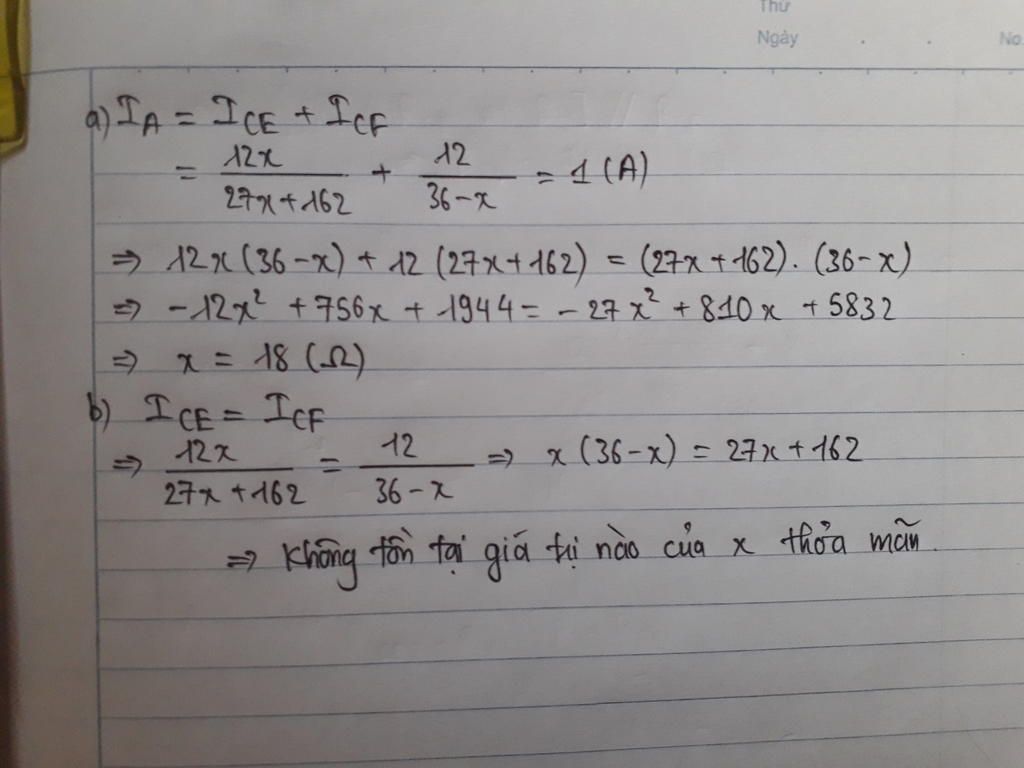 Thứ
Ngày . . No
a) I_A = I_CE + I_CF
= 12x/(27x+162) + 12/(36-x) = 1 (A)
⇒ 12x(36-x) + 12(27x+162) = (27x+162).(36-x)
⇒ -12x² + 756x + 1944 = -27x² + 810x + 5832
⇒ x = 18 (Ω)
b) I_CE = I_CF
⇒ 12x/(27x+162) = 12/(36-x) ⇒ x(36-x) = 27x+162
⇒ Không tồn tại giá trị nào của x thỏa mãn.